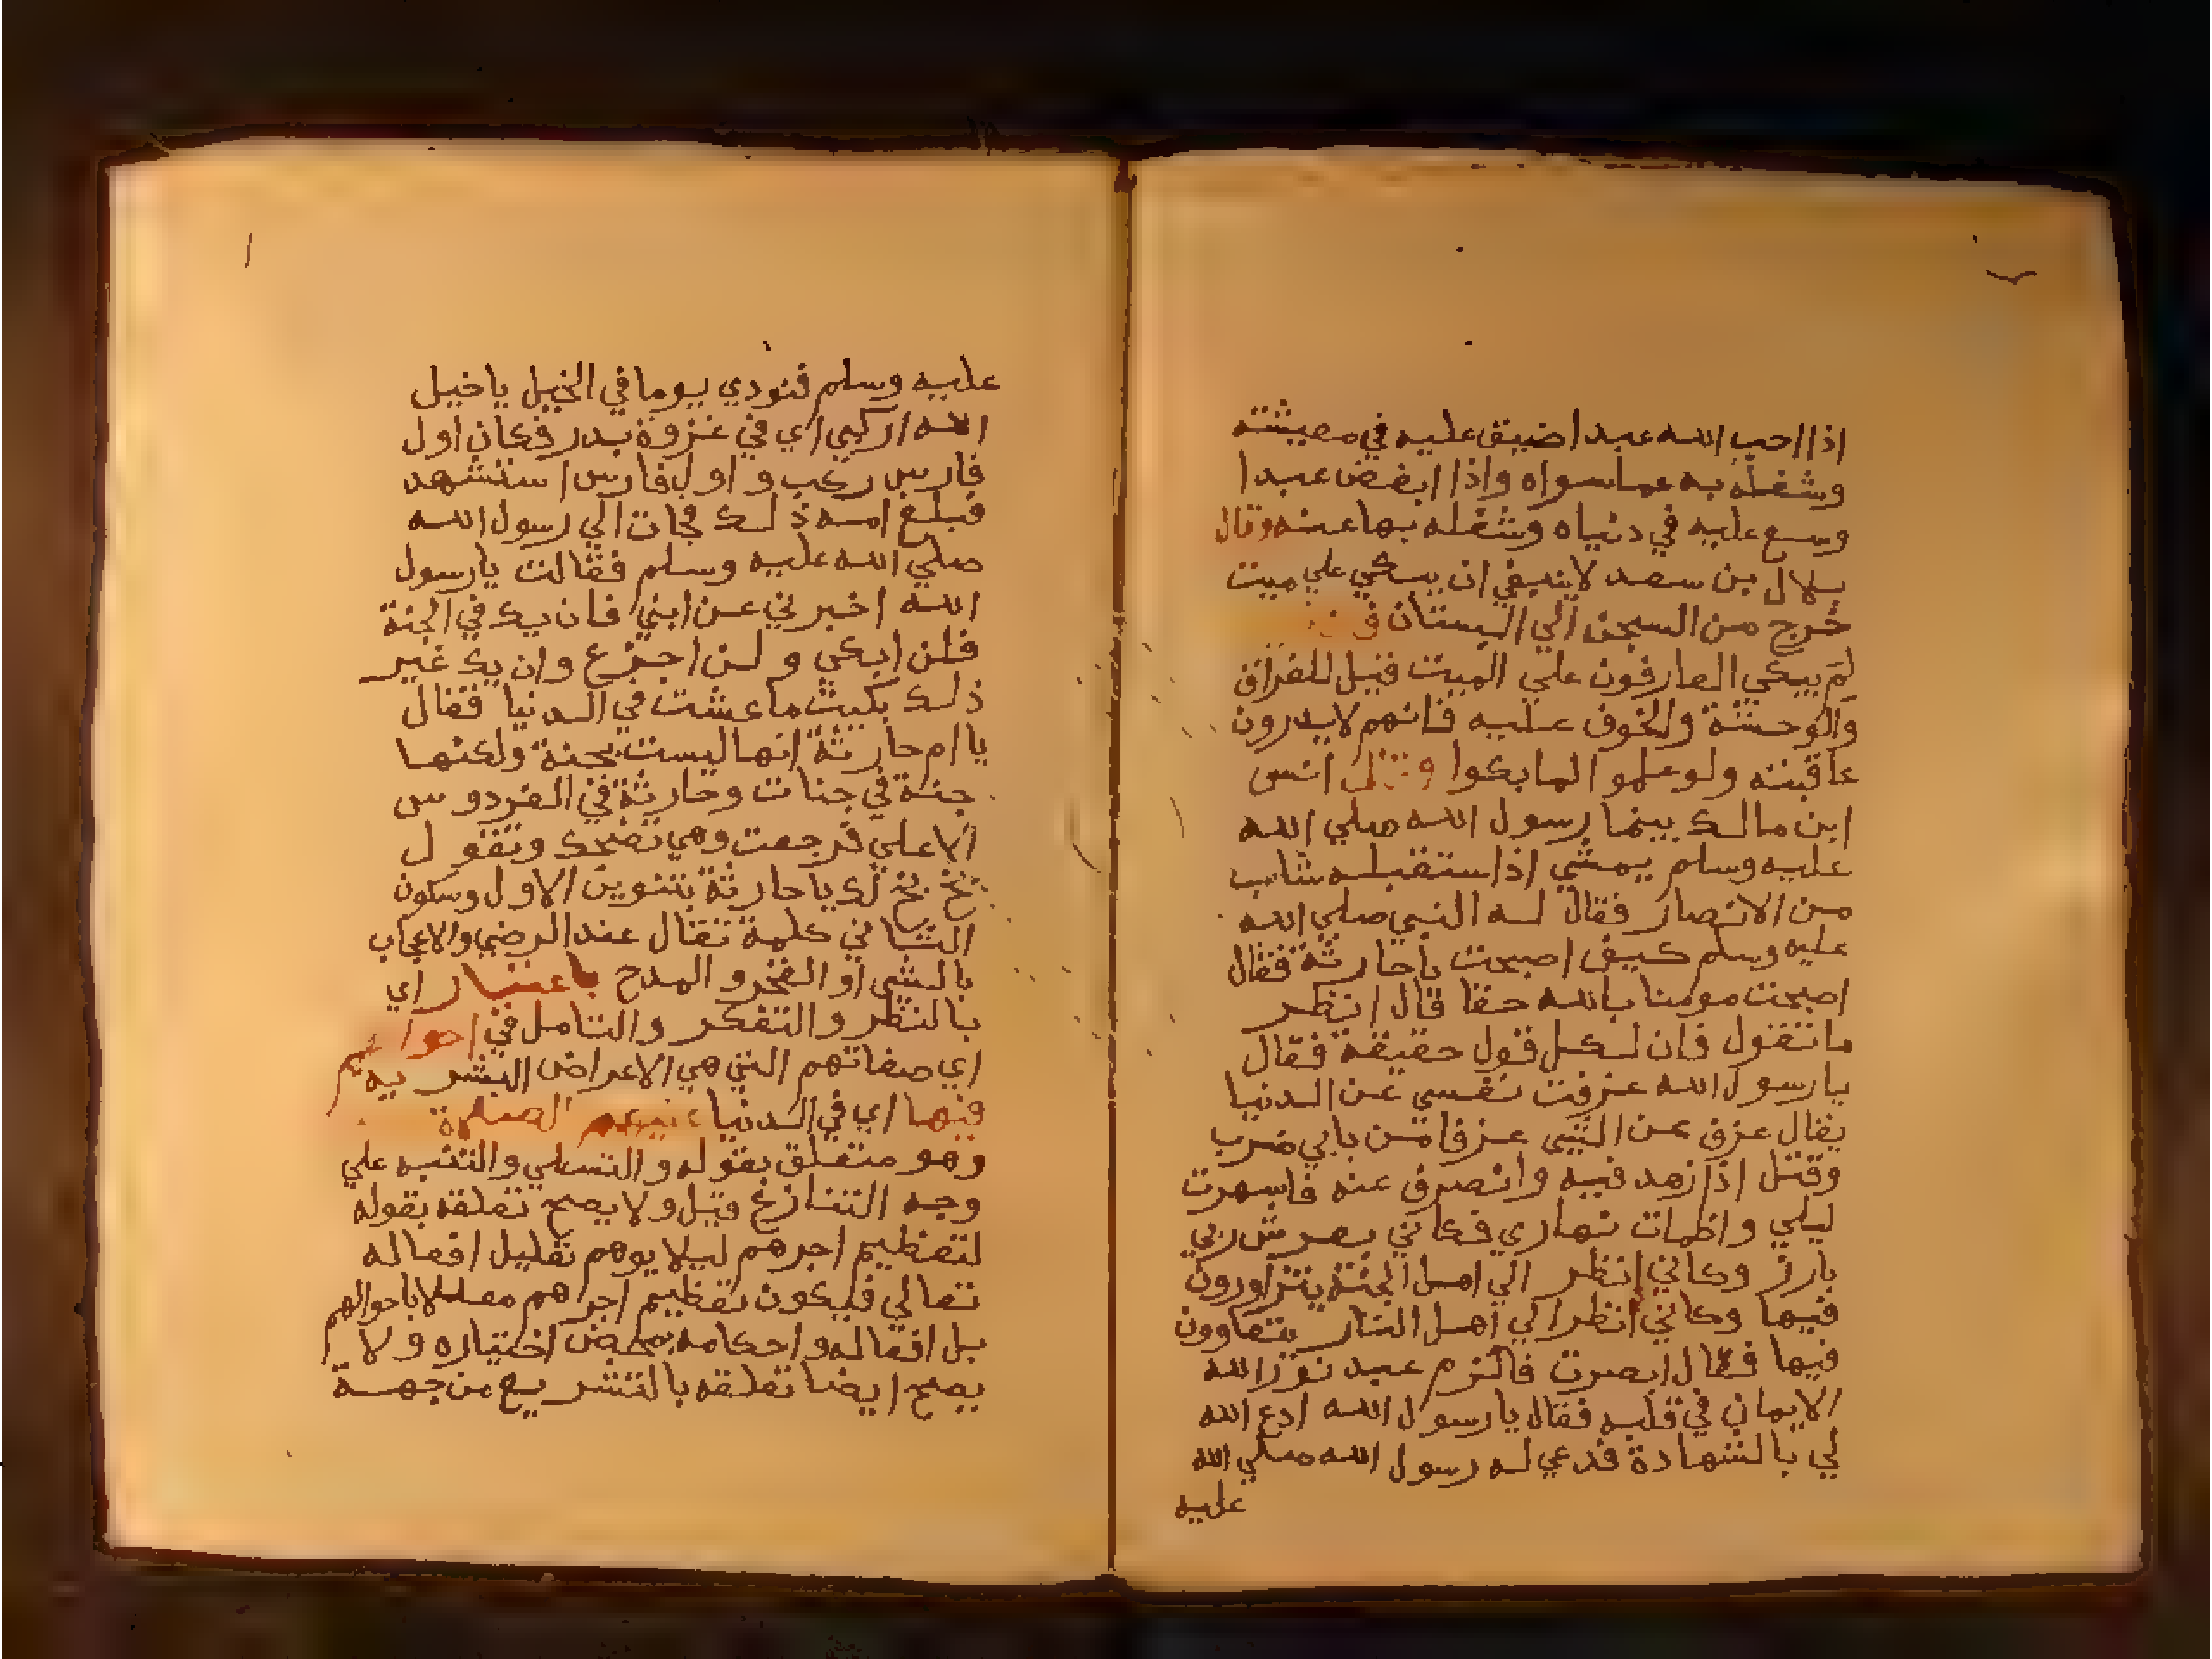 اذا احب الله عبدا ضيق عليه في معيشته
وشغله به عما سواه واذا ابغض عبدا
وسع عليه في دنياه وشغله بها عنه وقال
بلال بن سعد لا ينبغي ان يبكي علي ميت
خرج من السجن الي البستان
لم يبكي العارفون علي الميت قيل للفراق
والوحشة والخوف عليه فانهم لا يدرون
عاقبته ولو علموا لما بكوا وقال انس
ابن مالك بينما رسول الله صلي الله
عليه وسلم يمشي اذا ستقبله شاب
من الانصار فقال له النبي صلي الله
عليه وسلم كيف اصبحت يا حارثة فقال
اصبحت مومنا بالله حقا قال انظر
ما تقول فان لكل قول حقيقة فقال
يا رسول الله عزفت نفسي عن الدنيا
يقال عزف عن الشي عزفا من بابي ضرب
وقتل اذا زهد فيه وانصرف عنه فاسهرت
ليلي واظمات نهاري فكاني بعرش ربي
بارز وكاني انظر الي اهل الجنة يتزاورون
فيها وكاني انظر الي اهل النار يتعاوون
فيها فقال ابصرت فالزم عبد نور الله
الايمان في قلبه فقال يا رسول الله ادع الله
لي بالشهادة فدعي له رسول الله صلي الله
عليه
عليه وسلم فنودي يوما في الخيل يا خيل
الله اركبي اي في غزوة بدر فكان اول
فارس ركب واول فارس استشهد
فبلغ امه ذلك فجات الي رسول الله
صلي الله عليه وسلم فقالت يا رسول
الله اخبرني عن ابني فان يك في الجنة
فلن ابكي ولن اجزع وان يك غير
ذلك بكيت ما عشت في الدنيا فقال
يا ام حارثة انها ليست بجنة ولكنها
جنة في جنات وحارثة في الفردوس
الاعلي فرجعت وهي تضحك وتقول
بخ بخ لك يا حارثة بتنوين الاول وسكون
الثاني كلمة تقال عند الرضي والاعجاب
بالشي او الفخر والمدح باعتبار اي
بالنظر والتفكر والتامل في احوالهم
اي صفاتهم التي هي الاعراض البشريه
فيها اي في الدنيا عليهم الصلاة
وهو متعلق بقوله والتسلي والتنبه علي
وجه التنازع قيل ولا يصح تعلقه بقوله
لتعظيم اجرهم ليلا يوهم تعليل افعاله
تعالي فيكون تعظيم اجرهم معللا باحوالهم
بل افعاله واحكامه بمحض اختياره ولا
يصح ايضا تعلقه بالتشريع من جهة